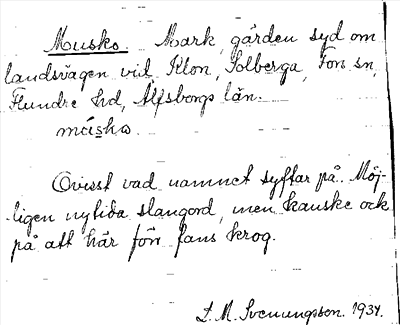 Musko. Mark, gården syd om
landsvägen vid Klon, Solberga, Fors sn,
Flundre hd, Älfsborgs län.
måsko
Ovisst vad namnet syftar på. Möj-
ligen nytida slangord, men kanske ock
på att här förr fans krog.
L. M. Svenungsson. 1934.